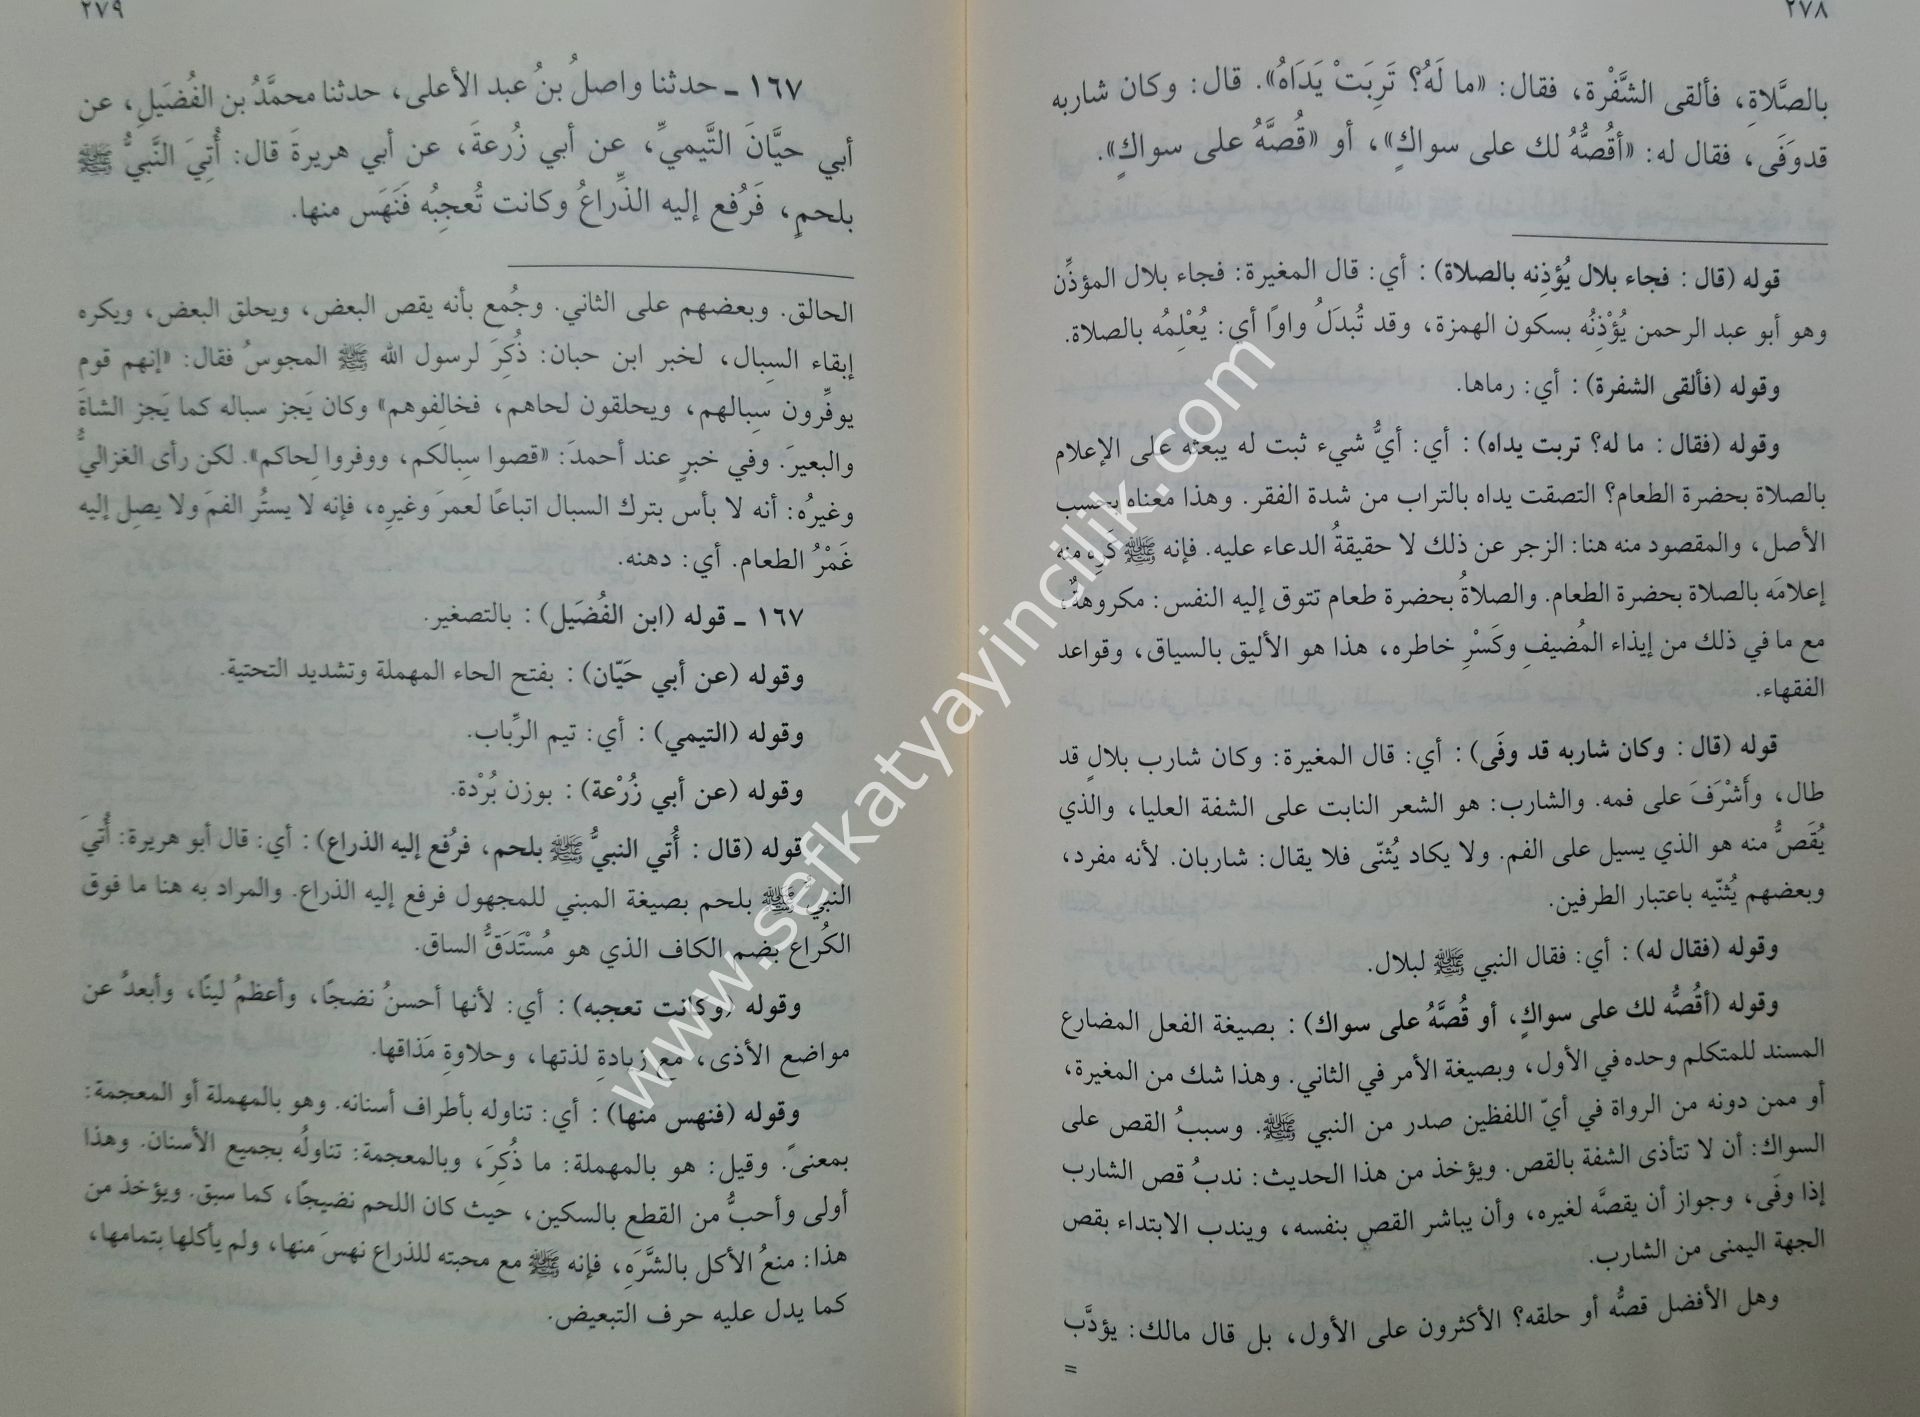 ٢٧٨
بالصَّلاةِ، فألقى الشَّفْرة، فقال: «ما لَهُ؟ تَرِبَتْ يَدَاهُ». قال: وكان شاربه
قدوَفَى، فقال له: «أقُصُّهُ لك على سواكٍ»، أو «قُصَّهُ على سواكٍ».
قوله (قال : فجاء بلال يُؤذِنه بالصلاة) : أي: قال المغيرة: فجاء بلال المؤذِّن
وهو أبو عبد الرحمن يُؤْذِنُه بسكون الهمزة، وقد تُبدَلُ واوًا أي: يُعْلِمُه بالصلاة.
وقوله (فألقى الشفرة) : أي: رماها.
وقوله (فقال : ما له؟ تربت يداه) : أي: أيُّ شيء ثبت له يبعثه على الإعلام
بالصلاة بحضرة الطعام؟ التصقت يداه بالتراب من شدة الفقر. وهذا معناه بحسب
الأصل، والمقصود منه هنا: الزجر عن ذلك لا حقيقةُ الدعاء عليه. فإنه ﷺ كَرِه منه
إعلامَه بالصلاة بحضرة الطعام. والصلاةُ بحضرة طعام تتوق إليه النفس: مكروهةٌ،
مع ما في ذلك من إيذاء المُضيفِ وكَسْرِ خاطره، هذا هو الأليق بالسياق، وقواعد
الفقهاء.
قوله (قال : وكان شاربه قد وفَى) : أي: قال المغيرة: وكان شارب بلالٍ قد
طال، وأَشْرَفَ على فمه. والشارب: هو الشعر النابت على الشفة العليا، والذي
يُقَصُّ منه هو الذي يسيل على الفم. ولا يكاد يُثنّى فلا يقال: شاربان. لأنه مفرد،
وبعضهم يُثنّيه باعتبار الطرفين.
وقوله (فقال له) : أي: فقال النبي ﷺ لبلال.
وقوله (أقُصُّه لك على سواكٍ، أو قُصَّهُ على سواك) : بصيغة الفعل المضارع
المسند للمتكلم وحده في الأول، وبصيغة الأمر في الثاني. وهذا شك من المغيرة،
أو ممن دونه من الرواة في أيّ اللفظين صدر من النبي ﷺ. وسببُ القص على
السواك: أن لا تتأذى الشفة بالقص. ويؤخذ من هذا الحديث: ندبُ قص الشارب
إذا وفَى، وجواز أن يقصَّه لغيره، وأن يباشر القص بنفسه، ويندب الابتداء بقص
الجهة اليمنى من الشارب.
وهل الأفضل قصُّه أو حلقه؟ الأكثرون على الأول، بل قال مالك: يؤدَّب
=
٢٧٩
١٦٧ ـ حدثنا واصلُ بنُ عبد الأعلى، حدثنا محمَّدُ بن الفُضَيلِ، عن
أبي حيَّانَ التَّيميِّ، عن أبي زُرعةَ، عن أبي هريرةَ قال: أُتِيَ النَّبيُّ ﷺ
بلحمٍ، فَرُفع إليه الذِّراعُ وكانت تُعجِبُه فَنَهَس منها.
الحالق. وبعضهم على الثاني. وجُمع بأنه يقص البعض، ويحلق البعض، ويكره
إبقاء السِبال، لخبر ابن حبان: ذُكِرَ لرسول الله ﷺ المجوسُ فقال: «إنهم قوم
يوفِّرون سِبالهم، ويحلقون لحاهم، فخالِفوهم» وكان يَجز سباله كما يَجز الشاةَ
والبعيرَ. وفي خبرٍ عند أحمدَ: «قصوا سِبالكم، ووفروا لِحاكم». لكن رأى الغزاليُّ
وغيرُه: أنه لا بأس بترك السبال اتباعًا لعمرَ وغيرِه، فإنه لا يستُر الفمَ ولا يصِل إليه
غَمْرُ الطعام. أي: دهنه.
١٦٧ ـ قوله (ابن الفُضَيل) : بالتصغير.
وقوله (عن أبي حَيّان) : بفتح الحاء المهملة وتشديد التحتية.
وقوله (التيمي) : أي: تيم الرِّباب.
وقوله (عن أبي زُرْعة) : بوزن بُرْدة.
قوله (قال : أُتي النبيُّ ﷺ بلحم، فرُفع إليه الذراع) : أي: قال أبو هريرة: أُتيَ
النبيُ ﷺ بلحم بصيغة المبني للمجهول فرفع إليه الذراع. والمراد به هنا ما فوق
الكُراع بضم الكاف الذي هو مُسْتَدَقُّ الساق.
وقوله (وكانت تعجبه) : أي: لأنها أحسنُ نضجًا، وأعظمُ لينًا، وأبعدُ عن
مواضع الأذى، مع زيادةِ لذتها، وحلاوةِ مَذاقها.
وقوله (فنهس منها) : أي: تناوله بأطراف أسنانه. وهو بالمهملة أو المعجمة:
بمعنىً. وقيل: هو بالمهملة: ما ذُكِرَ، وبالمعجمة: تناولُه بجميع الأسنان. وهذا
أولى وأحبُّ من القطع بالسكين، حيث كان اللحم نضيجًا، كما سبق. ويؤخذ من
هذا: منعُ الأكل بالشَّرَهِ، فإنه ﷺ مع محبته للذراع نهسَ منها، ولم يأكلها بتمامها،
كما يدل عليه حرف التبعيض.
www.sefkatyayincilik.com